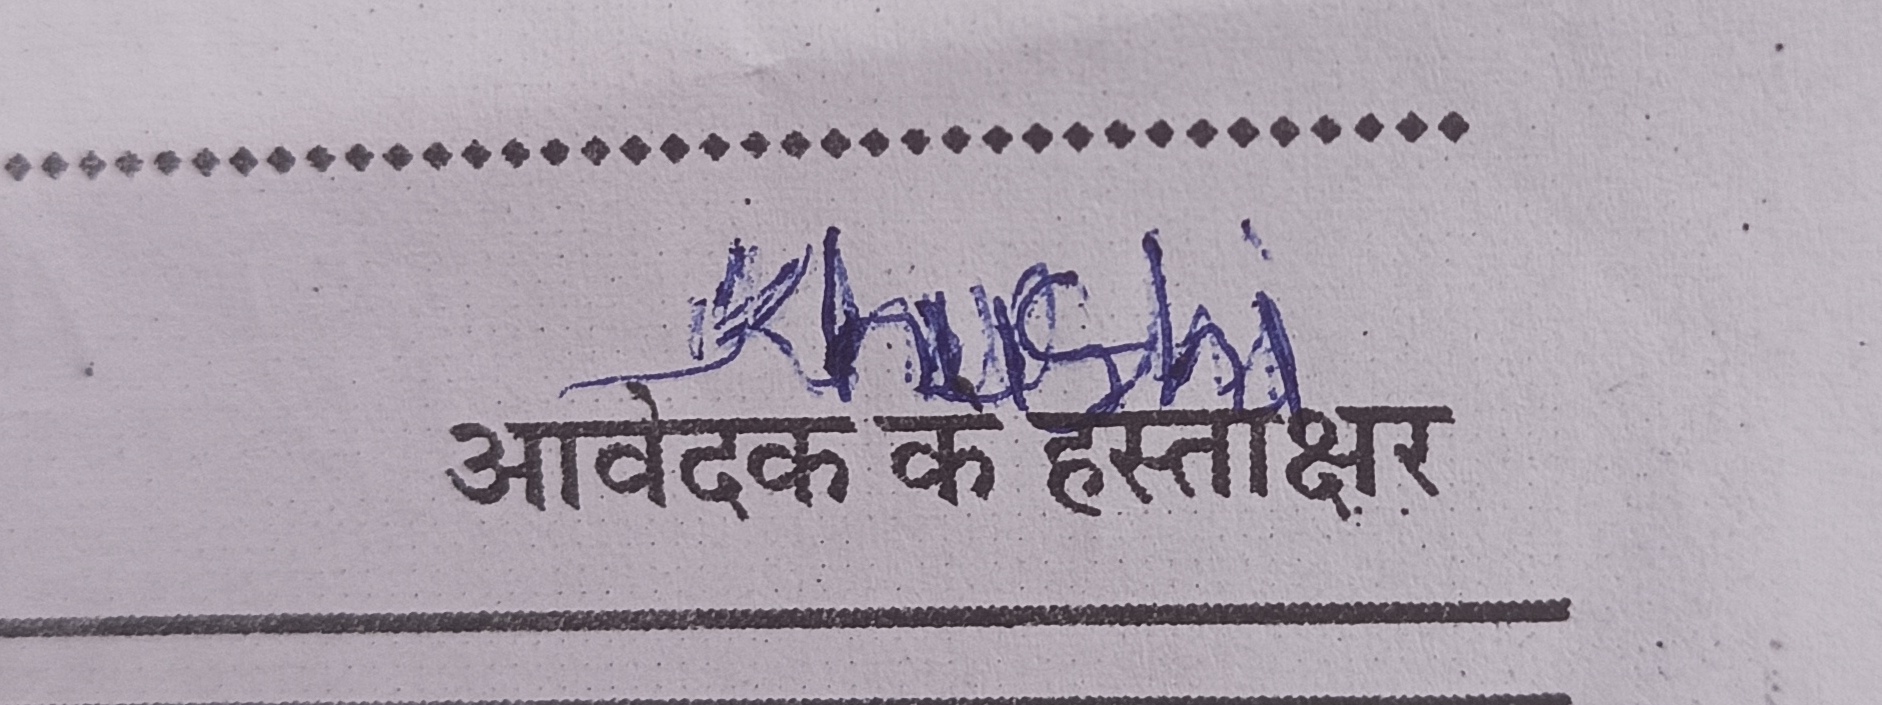 Khushi
आवेदक के हस्ताक्षर